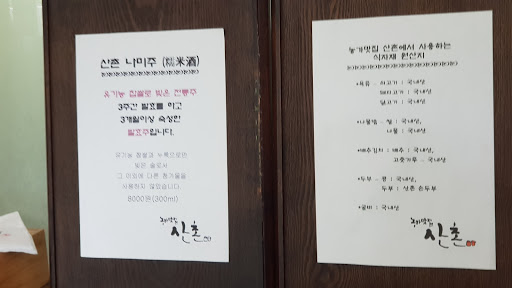 산촌 나미주 (糯米酒)
유기농 찹쌀로 빚은 전통주
3주간 발효를 하고
3개월이상 숙성한
발효주입니다.
유기농 찹쌀과 누룩으로만
빚은 술로서
그 이외에 다른 첨가물을
사용하지 않았습니다.
8000원(300ml)
농가맛집
산촌
농가맛집 산촌에서 사용하는
식자재 원산지
•육류 - 쇠고기 : 국내산
돼지고기 : 국내산
닭고기 : 국내산
•나물밥 - 쌀 : 국내산,
나물 : 국내산
•배추김치 : 배추 : 국내산
고춧가루 - 국내산
•두부 - 콩 : 국내산,
두부 : 산촌 손두부
: 국내산
농가맛집
산촌